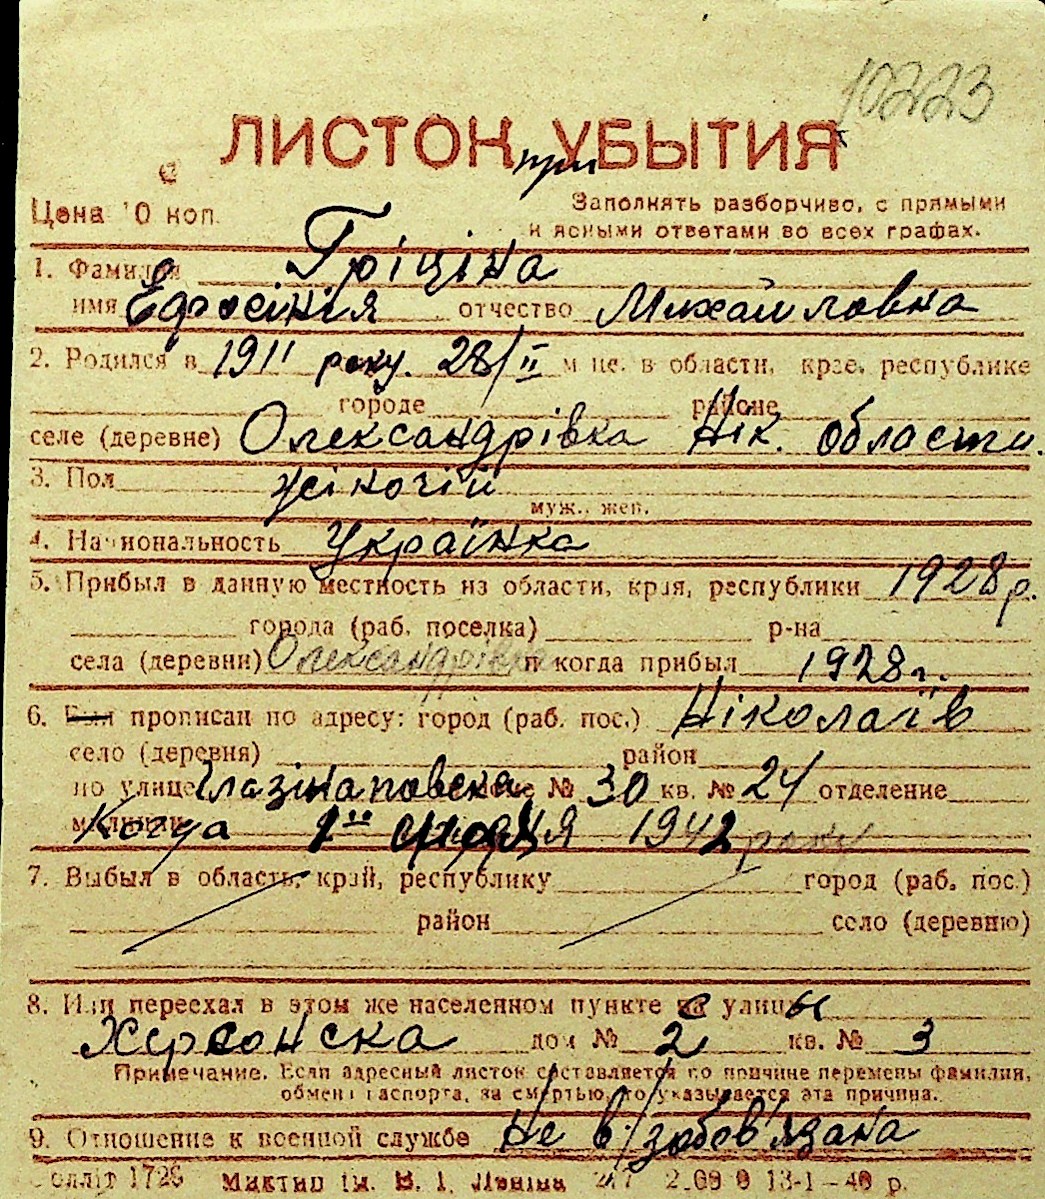 10223
ЛИСТОК при УБЫТИЯ
Цена 10 коп.
Заполнять разборчиво, с прямыми
и ясными ответами во всех графах.
1. Фамилия Гріціна
имя Єфросінія отчество Михайловна
2. Родился в 1911 року. 28/II м-це. в области, крае, республике
городе районе
селе (деревне) Олександрівка Нік. области.
3. Пол жіночій
муж., жен.
4. Национальность Українка
5. Прибыл в данную местность из области, края, республики 1928 р.
города (раб. поселка) р-на
села (деревни) Олександрівка и когда прибыл 1928 г.
6. Был прописан по адресу: город (раб. пос.) Ніколаїв
село (деревня) район
по улице Глазінаповска № 30 кв. № 24 отделение
милиции Когда 1942 року
7. Выбыл в область, край, республику город (раб. пос.)
район село (деревню)
8. Или переехал в этом же населенном пункте с улицы
Херсонска дом № 2 кв. № 3
Примечание. Если адресный листок составляется по причине перемены фамилии,
обмена паспорта, за смертью, то указывается эта причина.
9. Отношение к военной службе Не в/зобов'язана
1726 Миктип ім. В. І. Леніна 217 13-1—40 р.